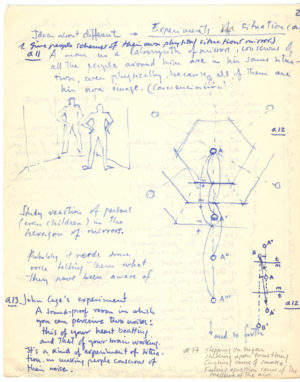 Ideas about different → Experiments situation (a
1. Give people schemes of their own physical situation (mirror)
a11 A man in a labyrinth of mirrors, conscious of
all the people around him are in his same situa-
tion, even physically, because all of them are
his own image.
a12
Study reaction of persons
(even children) in the
hexagon of mirrors.
Probably it needs some
voice telling them what
they have been aware of
a13 John Cage's experiment
A sound-proof room in which
you can perceive two noises:
this of your heart beating
and that of your brain working.
It's a kind of experiment of situa-
tion, in making people conscious of
their noise.
A
A'
A''
A'''
and so forth
a12
slipping on